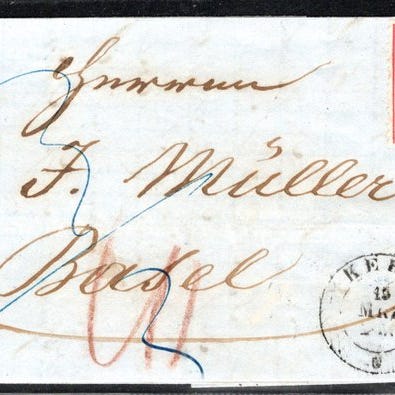 Herren
J. Müller
Basel
KER
15
MRZ